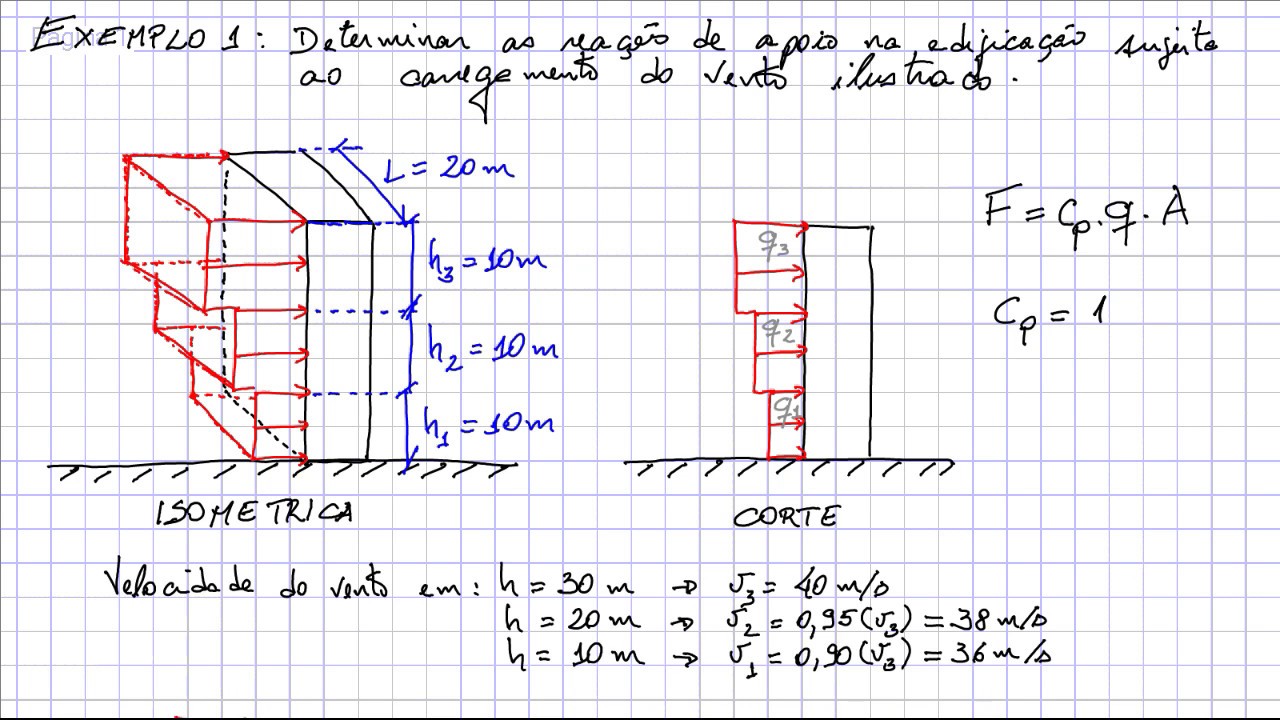 EXEMPLO 1: Determinar as reação de apoio na edificação sujeita
ao carregamento do vento ilustrado.
L = 20 m
h3 = 10 m
h2 = 10 m
h1 = 10 m
ISOMETRICA
q3
q2
q1
CORTE
F = Cp.q.A
Cp = 1
Velocidade do vento em: h = 30 m → v3 = 40 m/s
h = 20 m → v2 = 0,95(v3) = 38 m/s
h = 10 m → v1 = 0,90(v3) = 36 m/s